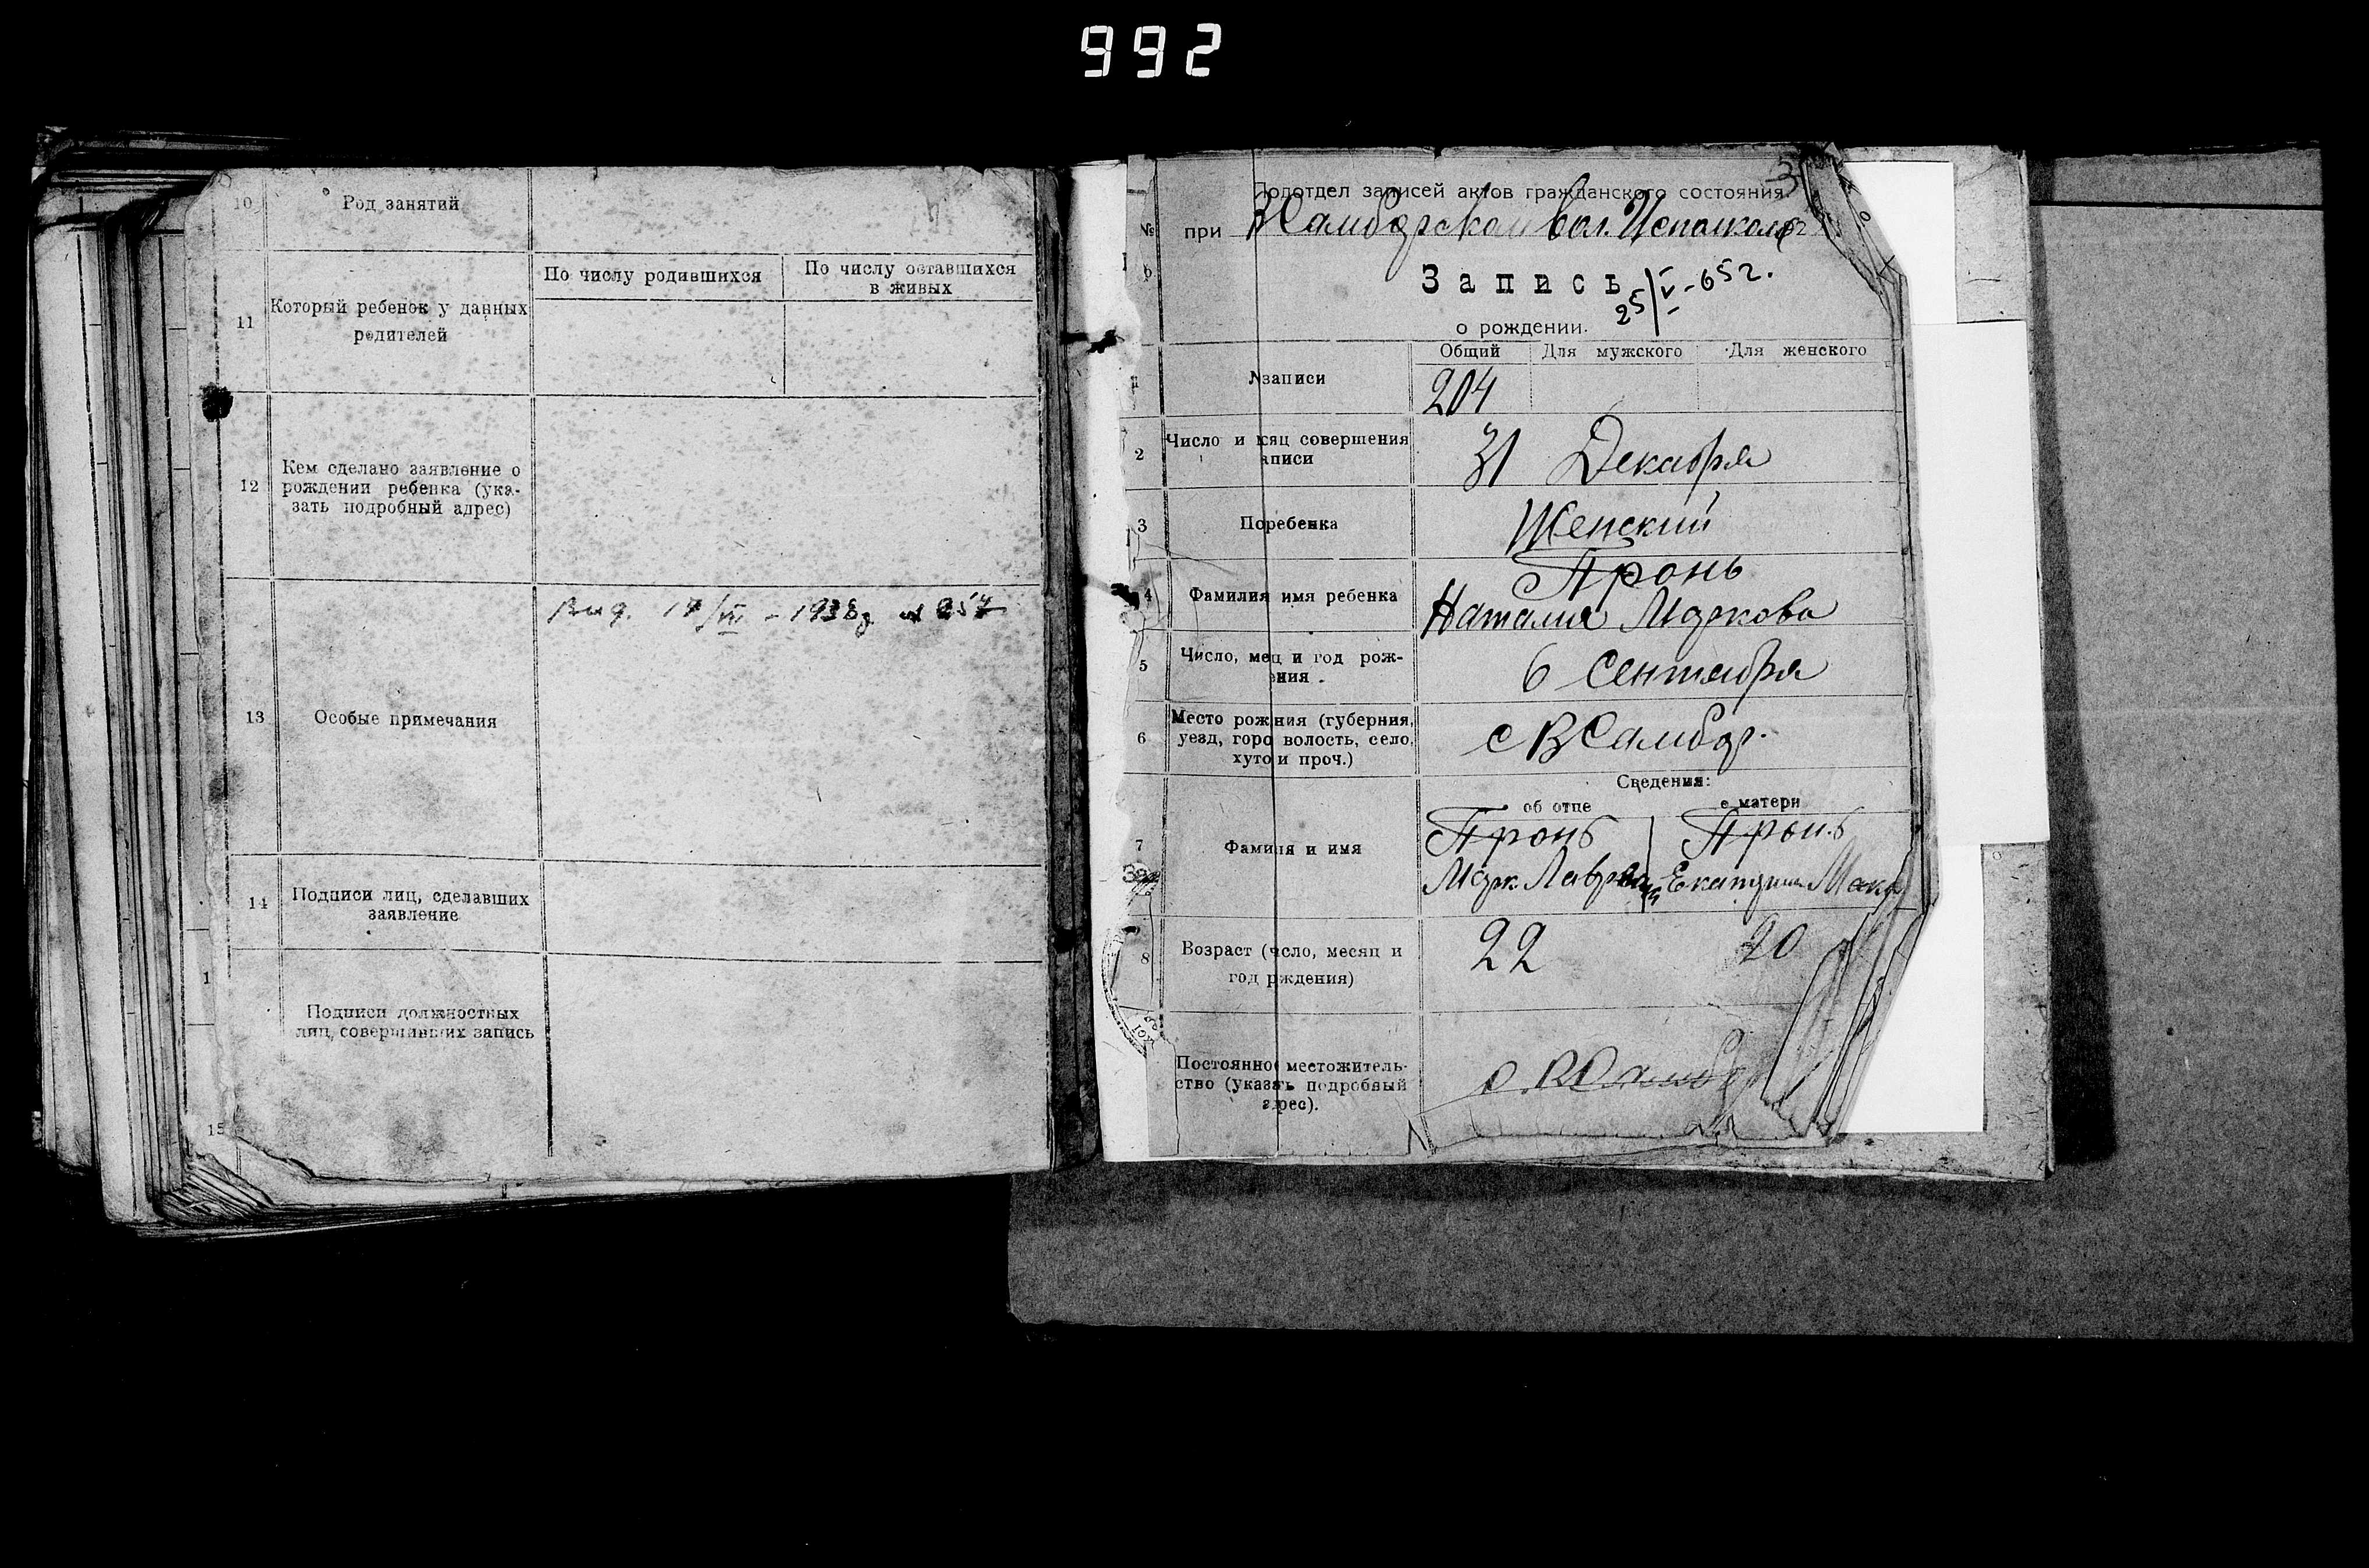 992
10 Род занятий
11 Который ребенок у данных родителей
По числу родившихся
По числу оставшихся
в живых
12 Кем сделано заявление о
рождении ребенка (ука-
зать подробный адрес)
13 Особые примечания
Вид. 17/VII - 1938
14 Подписи лиц, сделавших
заявление
Подписи должностных
лиц, совершивших запись
15
Подотдел записей актов гражданского состояния
№ при вол. Исполкоме
Запись
25/V - 652.
о рождении.
Общий Для мужского Для женского
1 № записи
204
2 Число и месяц совершения
записи
31 Декабря
3 Пол ребенка
Женский
4 Фамилия имя ребенка
Пронь
Наталия Маркова
5 Число, месяц и год рож-
дения
6 Сентября
6 Место рождения (губерния,
уезд, город волость, село,
хутор и проч.)
с В Самбор
Сведения:
об отце о матери
7 Фамилия и имя
Пронь Пронь
Марк Екатерина
8 Возраст (число, месяц и
год рождения)
22 20
Постоянное местожитель-
ство (указать подробный
адрес).